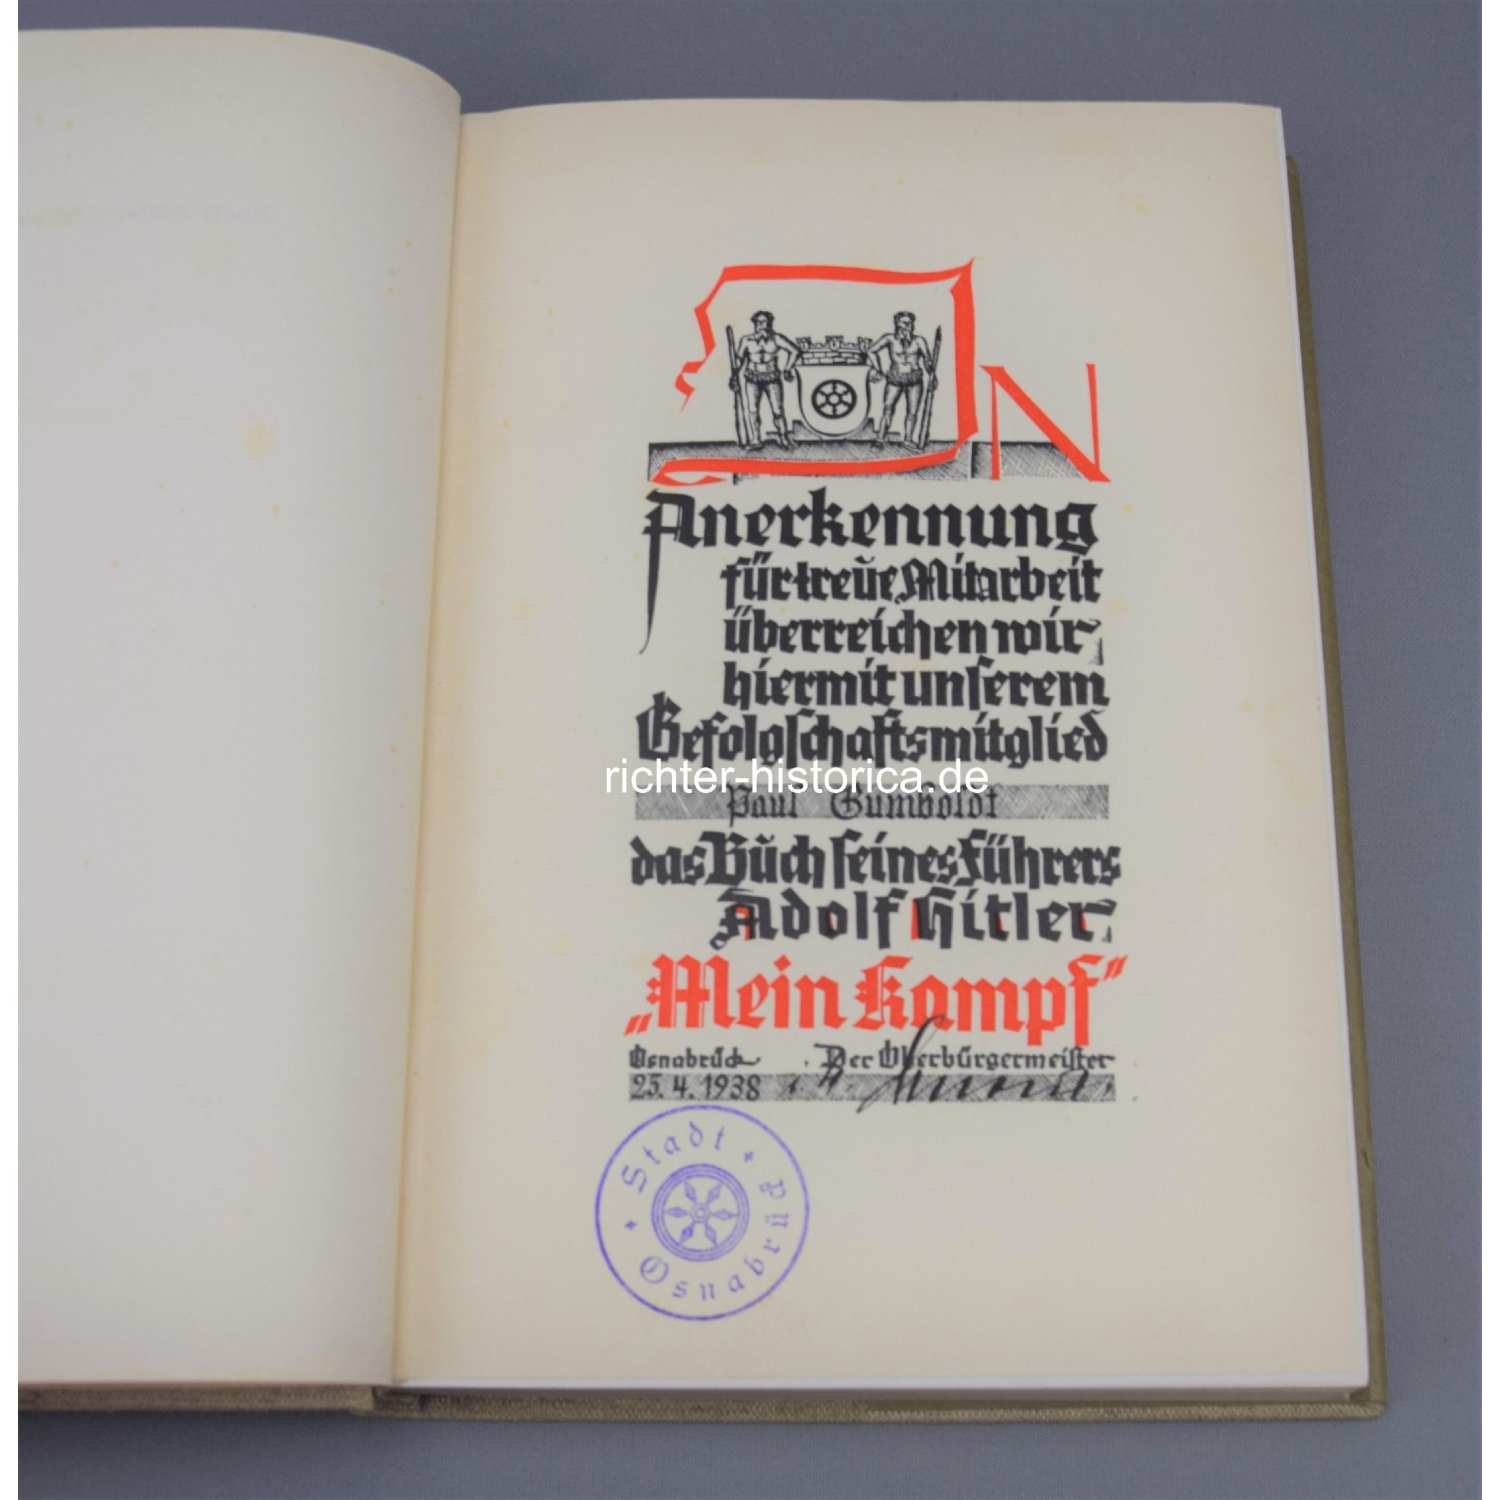 IN
Anerkennung
für treue Mitarbeit
überreichen wir
hiermit unserem
Gefolgschaftsmitglied
richter-historica.de
Paul Gumboldt
das Buch seines Führers
Adolf Hitler
„Mein Kampf“
Osnabrück Der Oberbürgermeister
25. 4. 1938
Stadt Osnabrück